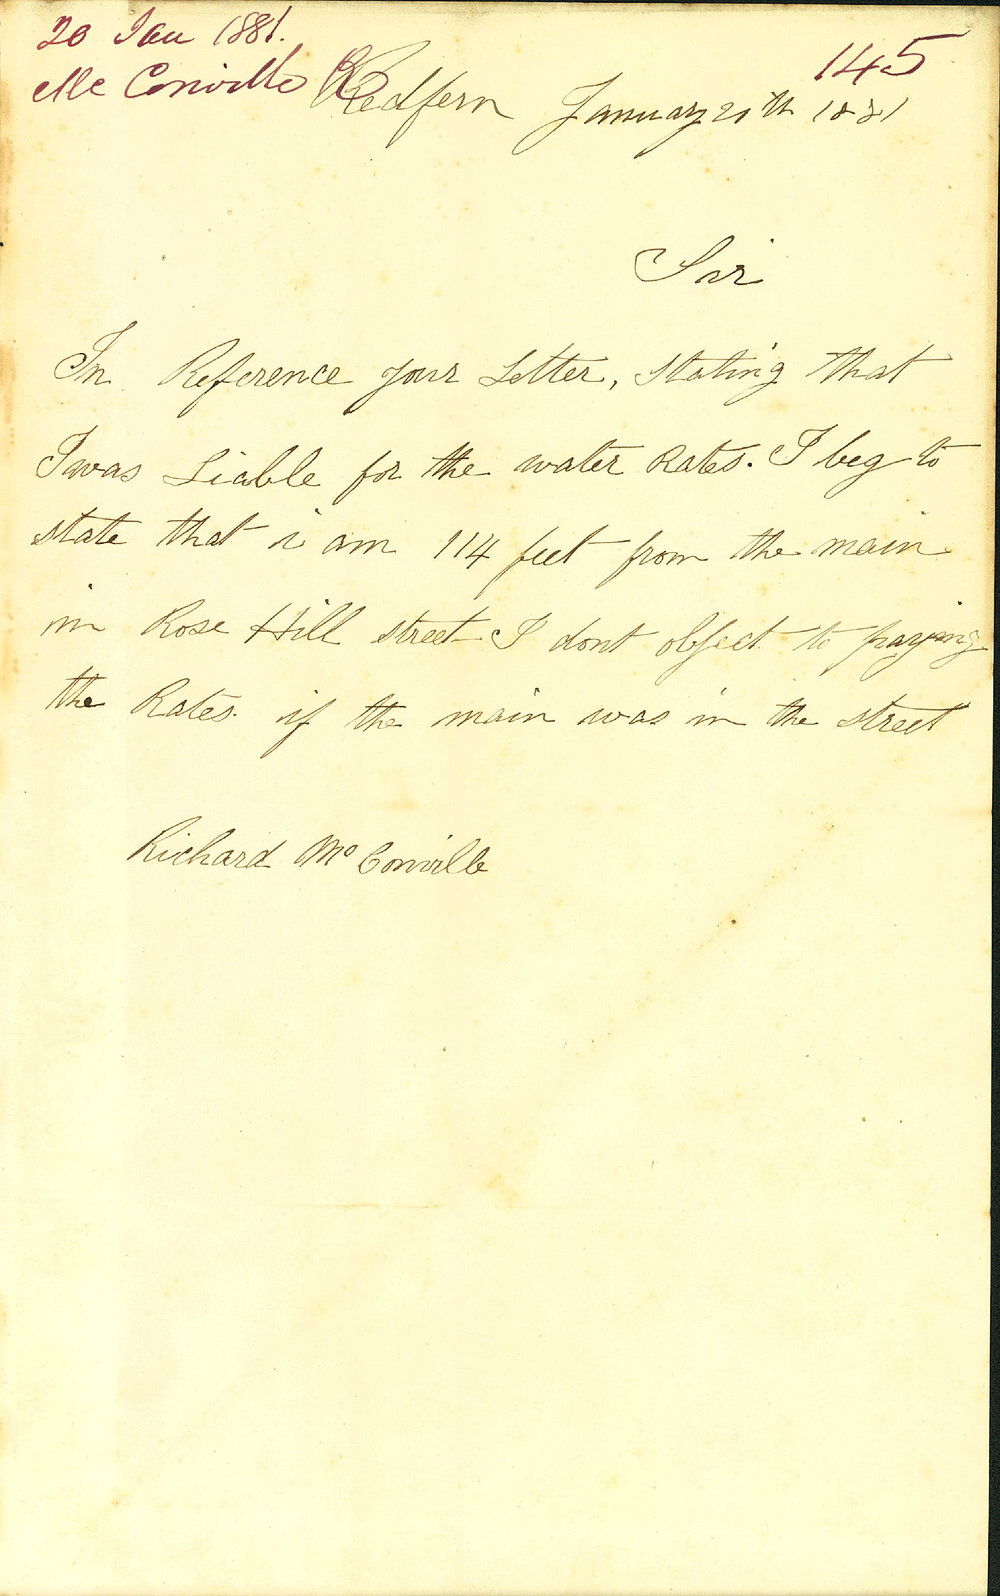 20 Jan 1881.
McConville R
145
Redfern January 20th 1881
Sir
In Reference your Letter, stating that
I was Liable for the water Rates. I beg to
state that i am 114 feet from the main
in Rose Hill street I dont object to paying
the Rates. if the main was in the street
Richard McConville